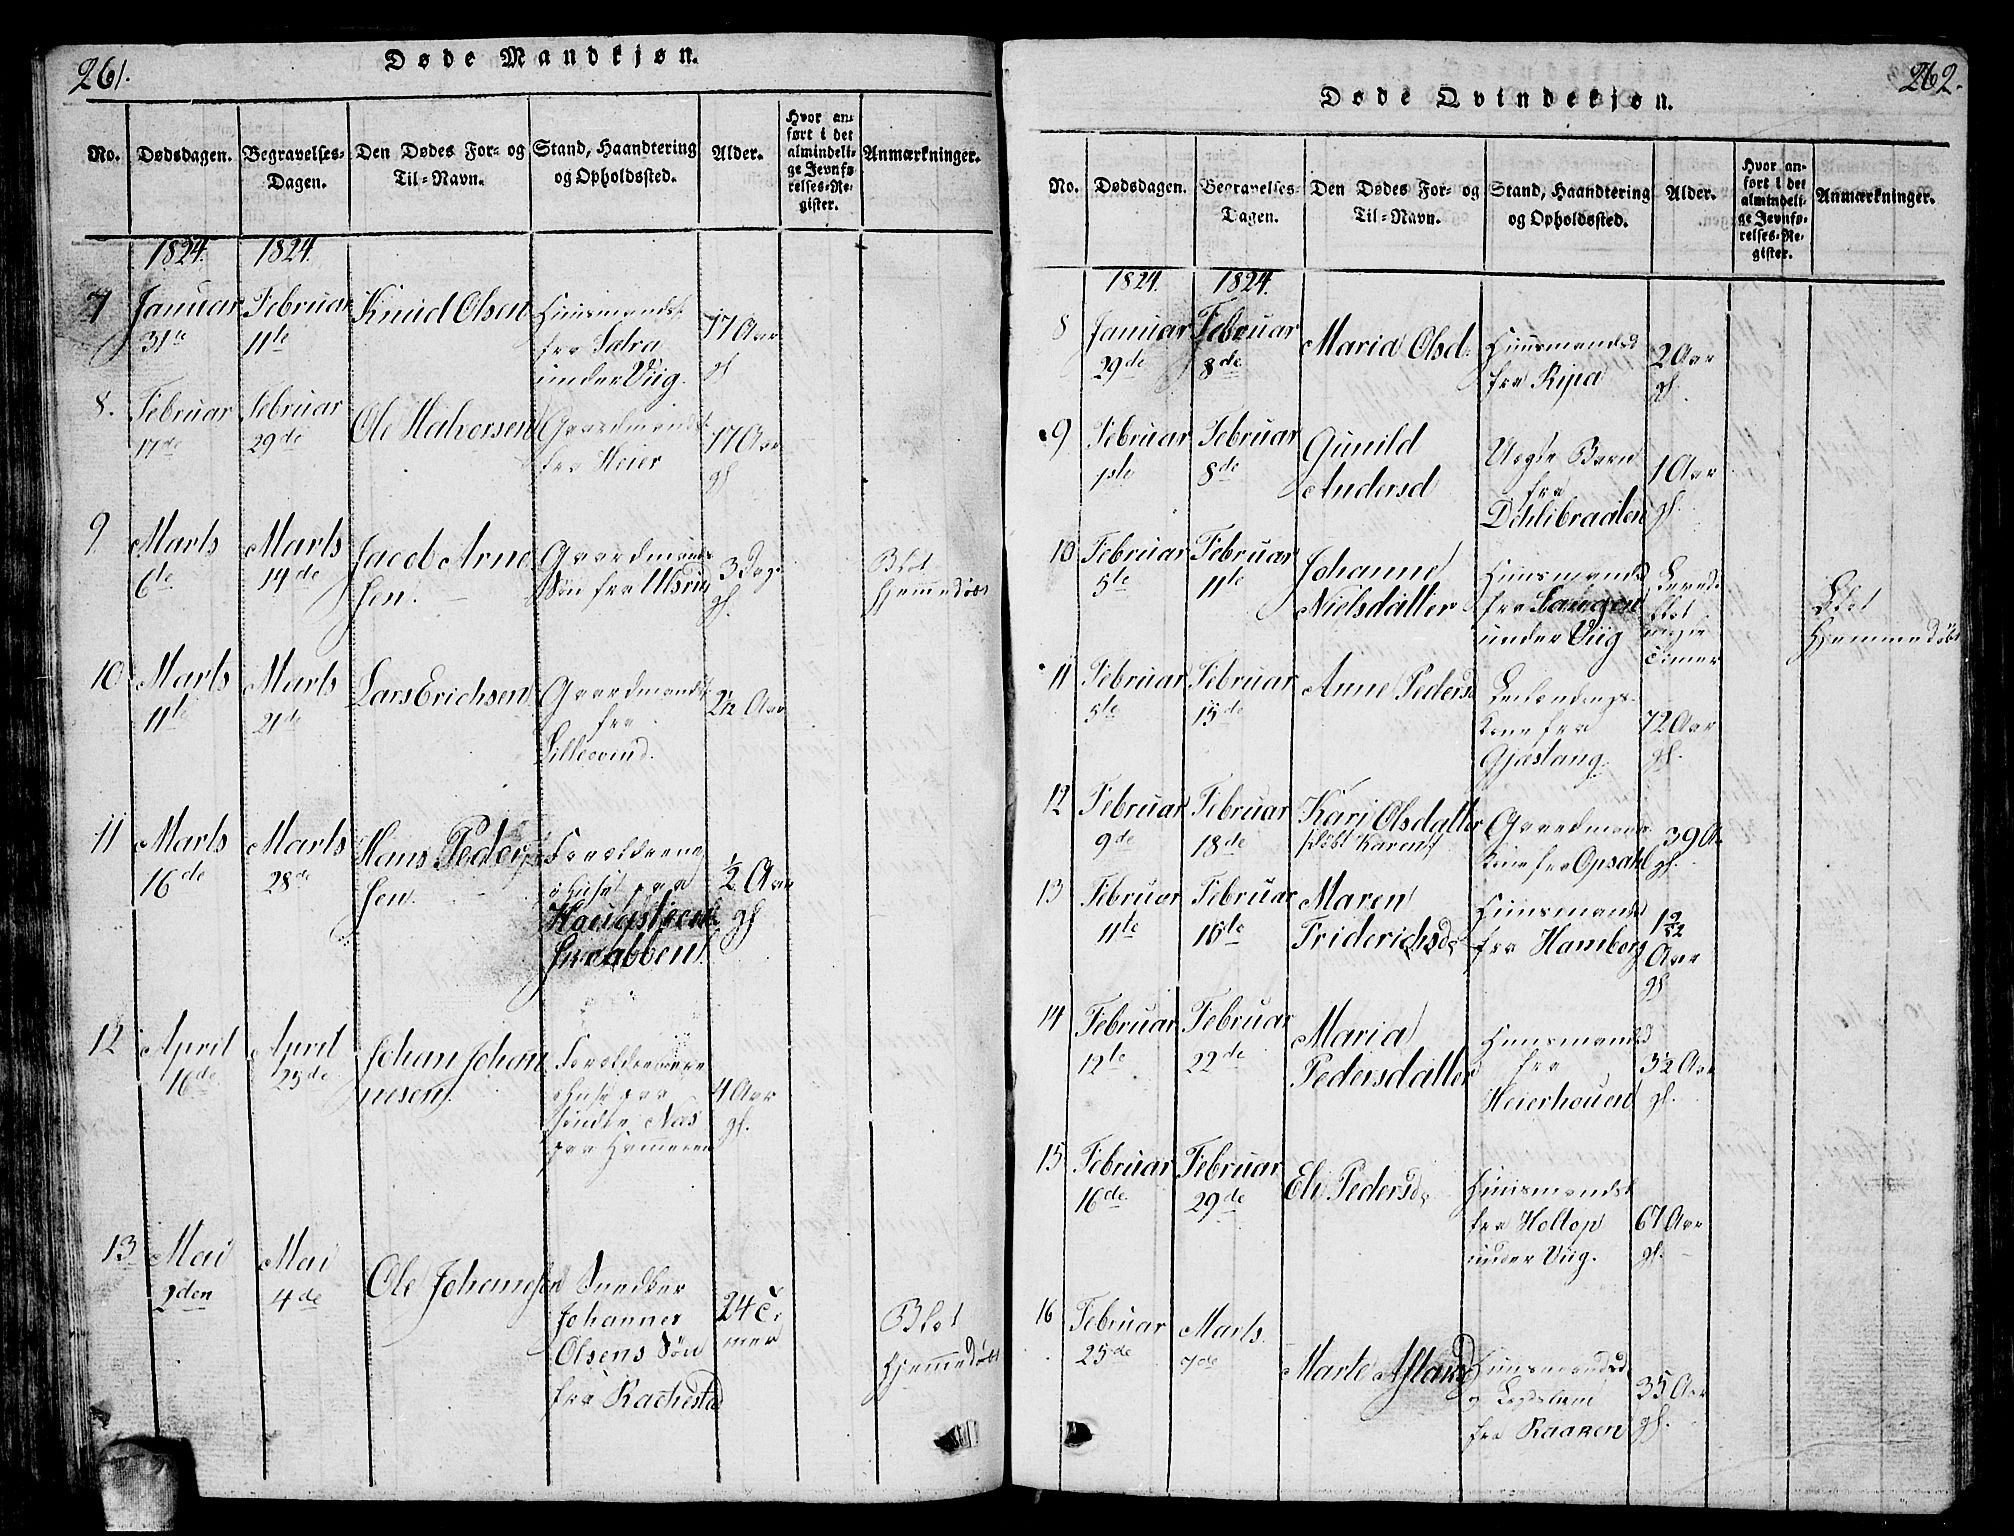 261.
Døde Mandkjøn.
No.
Dødsdagen.
Begravelses-
Dagen.
Den Dødes For- og
Til-Navn.
Stand, Haandtering
og Opholdssted.
Alder.
Hvor an-
ført i det
almindeli-
ge Jevnfø-
relses-Re-
gister.
Anmærkninger.
1824.
1824.
7
Januar
31te
Februar
11te
Knud Olsen
Huusmands.
fra Sætra
under Viig.
17 Aar
gl
8.
Februar
17de
Februar
29de
Ole Halvorsen
Gaardmands
fra Heier
17 Aar
gl
9
Marts
6te
Marts
14de
Jacob Arne
sen.
Gaardmands
Søn fra Ulsrud
3 Dage
gl.
Blot
Hjemmedøbt
10
Marts
11te
Marts
21de
Lars Erichsen
Gaardmands
fra
Lilleqvind.
2½ Aar
11
Marts
16de
Marts
28de
Hans Peder
sen.
Forældrene
paa
½ Aar
gl
12
April
16de
April
25de
Johan Johan
nesen.
Forældrene
Næs
paa Hemeren
4 Aar
gl.
13
Mai
2den
Mai
4de
Ole Johannesen
Snedker
Johannes
Olsens Søn
fra Rachestad
24 Ti
mer
Blot
Hjemmedøbt
262.
Døde Qvindekjøn.
No.
Dødsdagen.
Begravelses-
Dagen.
Den Dødes For- og
Til-Navn.
Stand, Haandtering
og Opholdssted.
Alder.
Hvor an-
ført i det
almindeli-
ge Jevnfø-
relses-Re-
gister.
Anmærkninger.
1824.
1824.
8
Januar
29de
Februar
8de
Maria Olsd.
Huusmandsd
fra Ripa
2 Aar
gl.
9
Februar
1ste
Februar
8de
Gunild
Andersd
Uegte Barn
fra
Dehlibraaten
1 Aar
gl.
10
Februar
5te
Februar
11te
Johanne
Nielsdatter
Huusmandsd
fra Haugen
under Viig
Levede
blot
nogle
Timer
Blot
Hjemmedøbt
11
Februar
5te
Februar
15de
Anne Pedersd
Leilændings-
Kone fra
Gjæstang
72 Aar
gl.
12
Februar
9de
Februar
18de
Kari Olsdatter
/døbt Karen/
Gaardmans
Kone fra Opsahl
39 A
gl.
13
Februar
11te
Februar
15de
Maren
Friderichsd.
Huusmandsd
fra Hamberg
Aar
gl
14
Februar
12te
Februar
22de
Maria
Pedersdatter
Huusmandsd
fra
Heierhouen
3½ Aar
gl.
15
Februar
16de
Februar
29de
Eli Pedersd.
Huusmandsk
fra Holtop
under Viig.
67 Aar
gl.
16
Februar
25de
Marts
7de
Marte Asland
Huusmandsd
og Lægdslem
fra Raaren
35 Aar
gl.